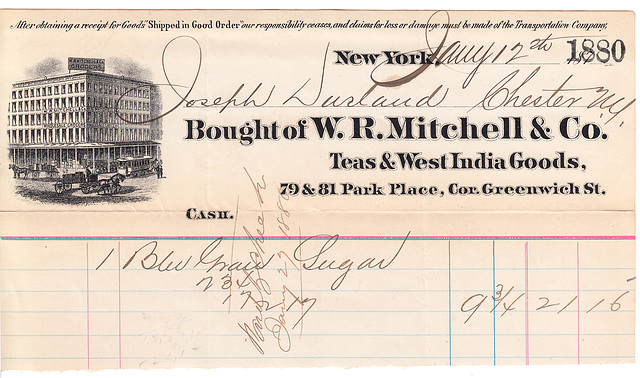 After obtaining a receipt for Goods "Shipped in Good Order" our responsibility ceases, and claims for loss or damage must be made of the Transportation Company,
New York, Jany 12th 1880
Joseph Durland Chester NY.
Bought of W. R. Mitchell & Co.
Teas & West India Goods,
79 & 81 Park Place, Cor. Greenwich St.
CASH.
1 Bbl Gran Sugar
234
17 217 9 3/4 21 16
Jany 27 1880